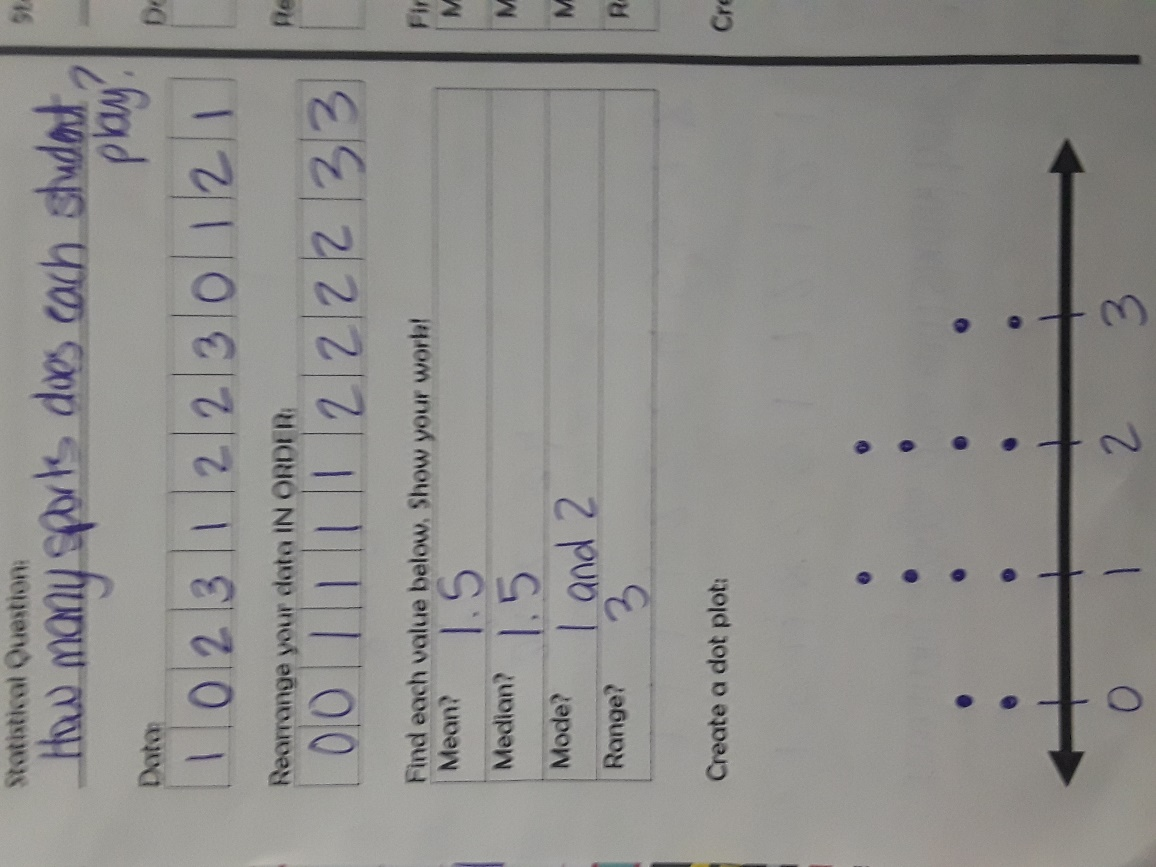 Statistical Question:
How many sports does each student
play?
Data:
1 0 2 3 1 2 2 3 0 1 2 1
Rearrange your data IN ORDER:
0 0 1 1 1 1 2 2 2 2 3 3
Find each value below. Show your work!
Mean? 1.5
Median? 1.5
Mode? 1 and 2
Range? 3
Create a dot plot:
0 1 2 3